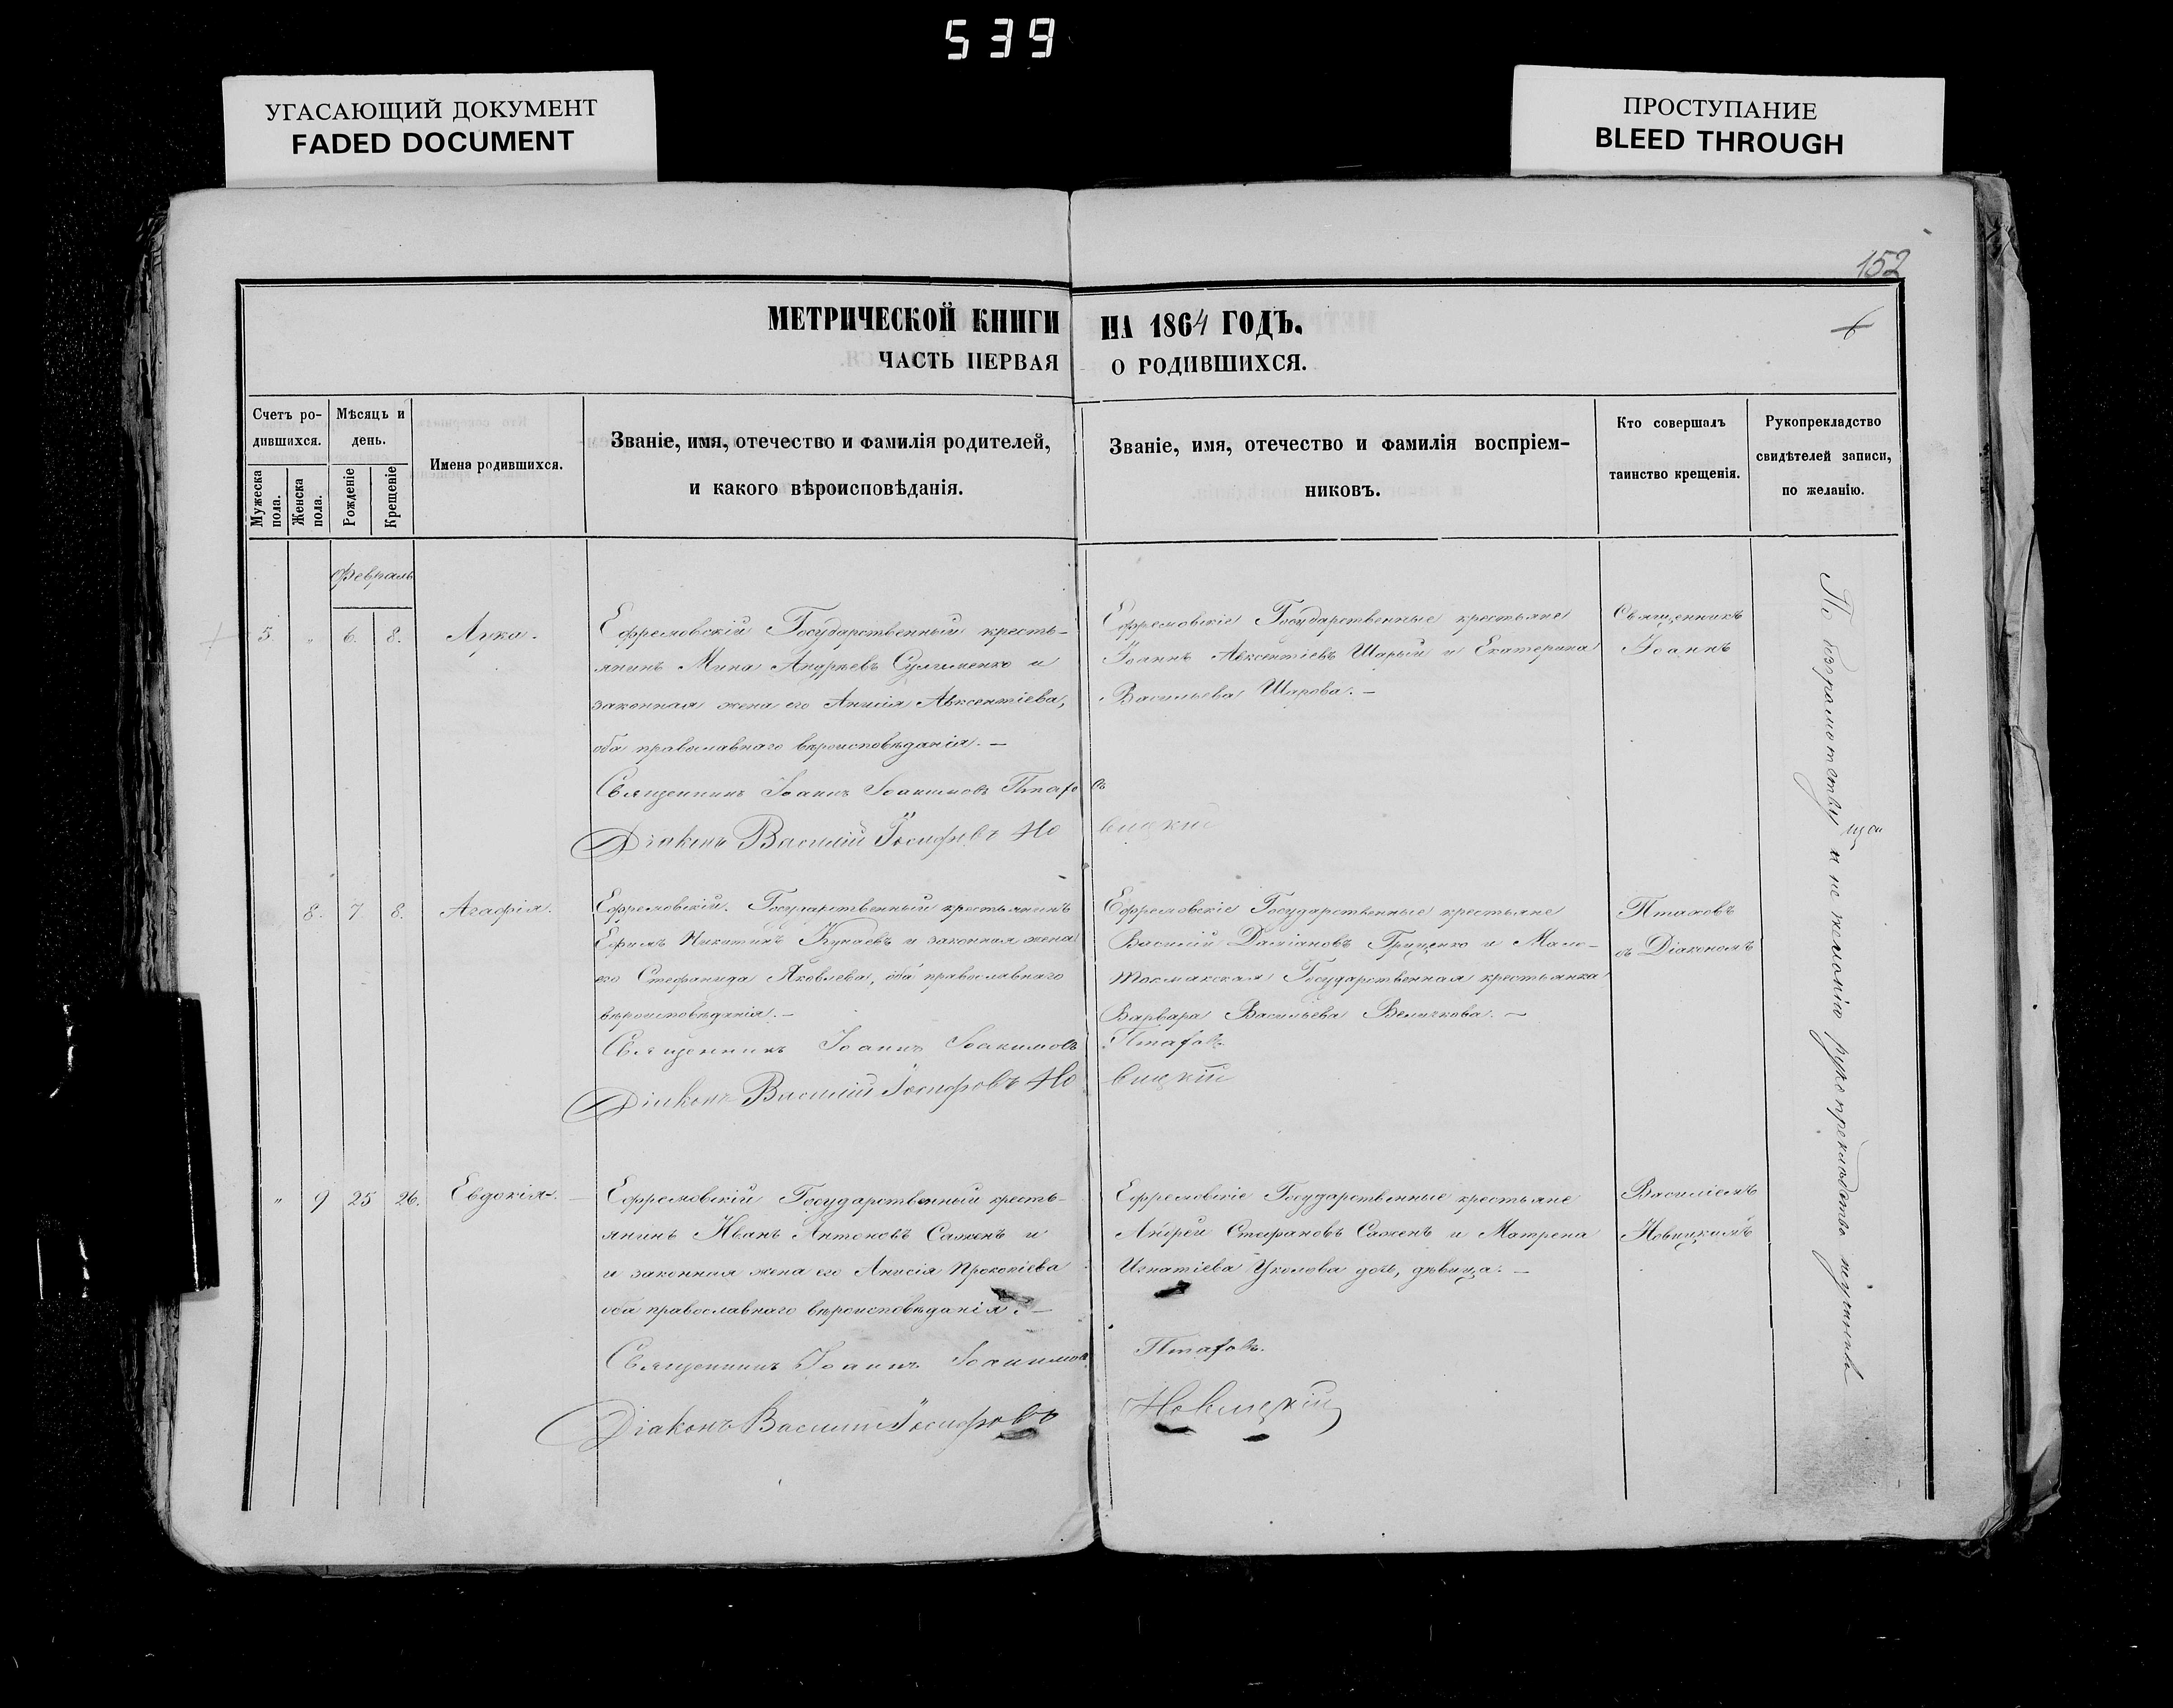 539
УГАСАЮЩИЙ ДОКУМЕНТ
FADED DOCUMENT
ПРОСТУПАНИЕ
BLEED THROUGH
152
МЕТРИЧЕСКОЙ КНИГИ НА 1864 ГОДЪ.
ЧАСТЬ ПЕРВАЯ О РОДИВШИХСЯ.
Счетъ ро-
дившихся.
Мужеска пола.
Женска пола.
Мѣсяцъ и
день.
Рожденіе
Крещеніе
Имена родившихся.
Званіе, имя, отечество и фамилія родителей,
и какого вѣроисповѣданія.
Званіе, имя, отечество и фамилія воспріем-
никовъ.
Кто совершалъ
таинство крещенія.
Рукоприкладство
свидѣтелей записи,
по желанію.
Февраль
5. " 6. 8. Лука.
Ефремовскій Государственный кресть-
янинъ Мина Андреевъ Сулименко и
законная жена его Анисія Авксентіева,
оба православнаго вѣроисповѣданія. —
Священникъ Іоаннъ Іоакимовъ Птаховъ
Діаконъ Василій Іосифовъ Новицкій
Ефремовскіе Государственные крестьяне
Іоаннъ Авксентіевъ Шарый и Екатерина
Васильева Шарова. —
Священникъ
Іоаннъ
8. 7 8. Агафія.
Ефремовскій Государственный крестьянинъ
Ефимъ Никитинъ Кунаевъ и законная жена
его Стефанида Яковлева, оба православнаго
вѣроисповѣданія. —
Священникъ Іоаннъ Іоакимовъ Птаховъ
Діаконъ Василій Іосифовъ Новицкій
Ефремовскіе Государственные крестьяне
Василій Даміановъ Гриценко и Мало-
токмакская Государственная крестьянка
Варвара Васильева Величкова. —
Птаховъ
съ Діакономъ
" 9 25 26. Евдокія.
Ефремовскій Государственный кресть-
янинъ Иванъ Антоновъ Саженъ и
и законная жена его Анисія Прокопіева
оба православнаго вѣроисповѣданія. —
Священникъ Іоаннъ Іоакимовъ Птаховъ.
Діаконъ Василій Іосифовъ Новицкій
Ефремовскіе Государственные крестьяне
Андрей Стефановъ Саженъ и Матрена
Игнатіева Уколова дочь, дѣвица. —
Василіемъ
Новицкимъ
По безграмотству и не желанію рукоприкладство